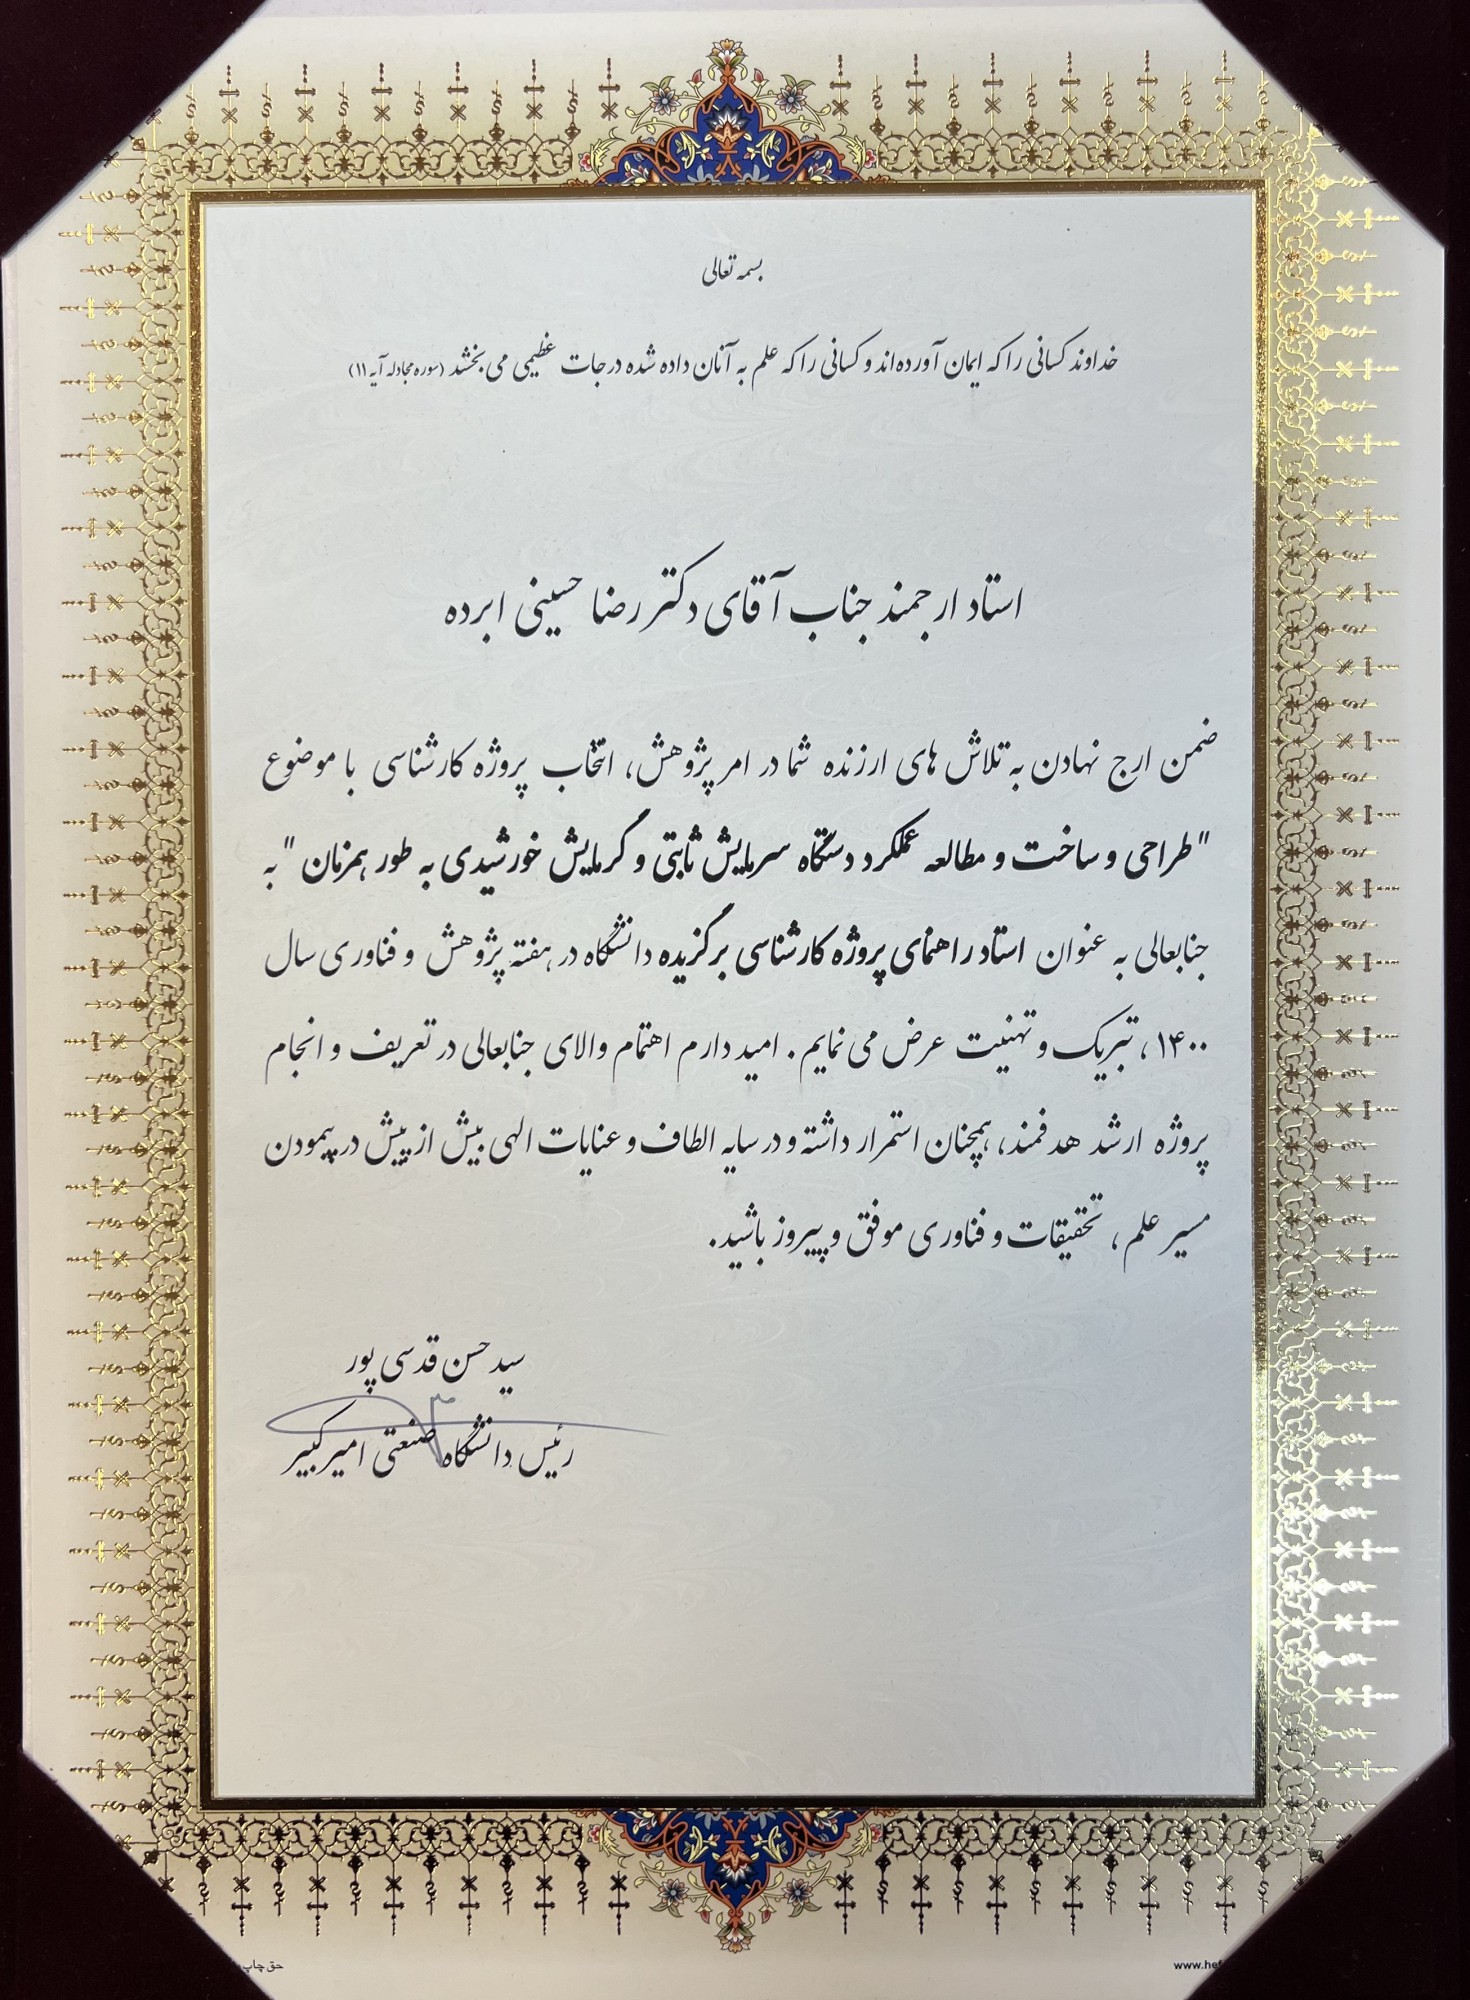 بسمه تعالی
خداوند کسانی را که ایمان آورده‌اند و کسانی را که علم به آنان داده شده درجات عظیمی می بخشد (سوره مجادله آیه ۱۱)
استاد ارجمند جناب آقای دکتر رضا حسینی ابرده
ضمن ارج نهادن به تلاش های ارزنده شما در امر پژوهش، انتخاب پروژه کارشناسی با موضوع
"طراحی و ساخت و مطالعه عملکرد دستگاه سرمایش تابشی و گرمایش خورشیدی به طور همزمان" به
جنابعالی به عنوان استاد راهنمای پروژه کارشناسی برگزیده دانشگاه در هفته پژوهش و فناوری سال
۱۴۰۰، تبریک و تهنیت عرض می نمایم. امید دارم اهتمام والای جنابعالی در تعریف و انجام
پروژه ارشد هدفمند، همچنان استمرار داشته و در سایه الطاف و عنایات الهی بیش از پیش در پیمودن
مسیر علم، تحقیقات و فناوری موفق و پیروز باشید.
سید حسن قدسی پور
رئیس دانشگاه صنعتی امیرکبیر
حق چاپ